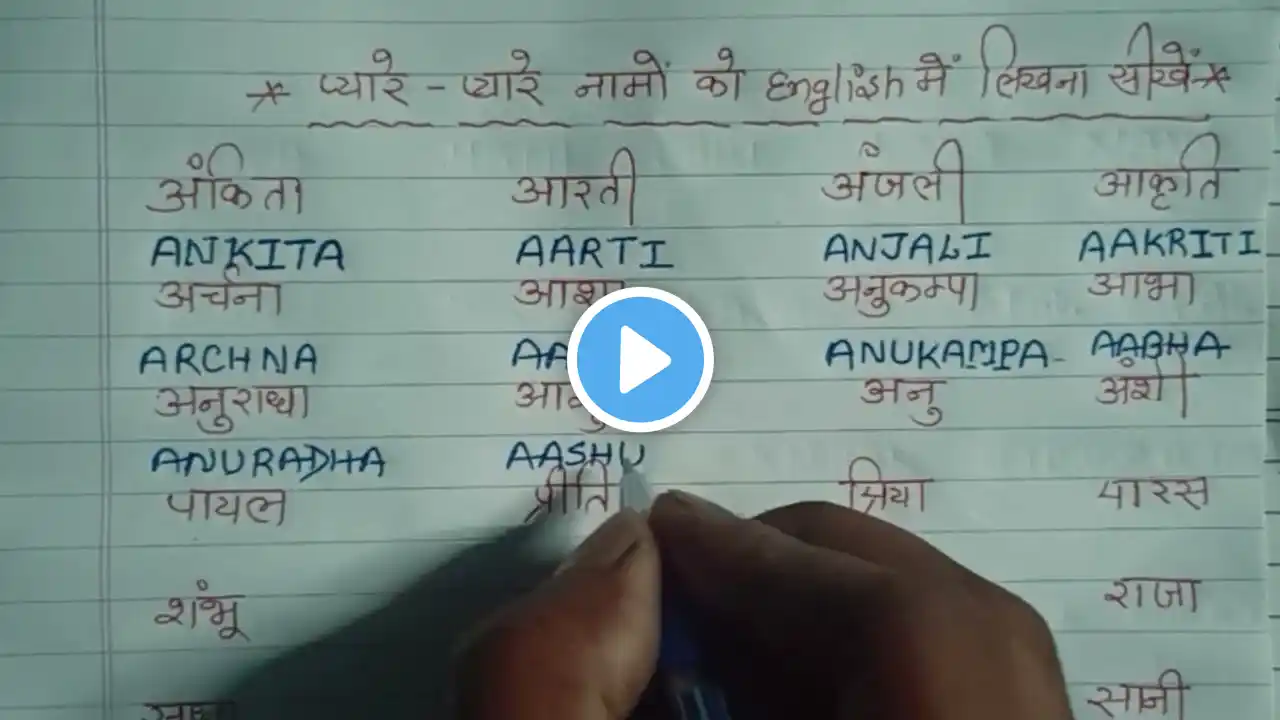 * प्यारे - प्यारे नामों को English में लिखना सीखें *
अंकिता आरती अंजली आकृति
ANKITA AARTI ANJALI AAKRITI
अर्चना आशा अनुकम्पा आभा
ARCHNA ANUKAMPA AABHA
अनुराधा अनु अंशी
ANURADHA AASHU
पायल प्रीति प्रिया पारस
शंभू राजा
सानी